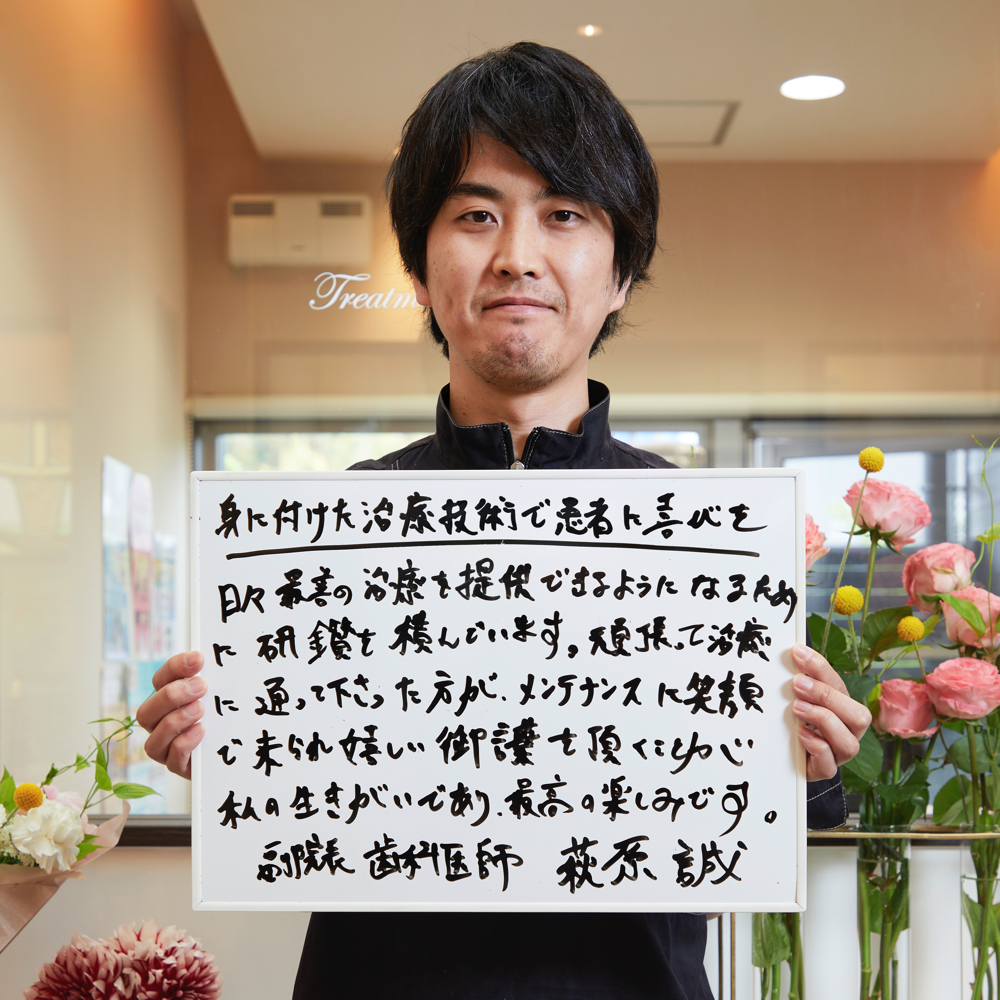 Treatm
身に付けた治療技術で患者に喜びを
日々最善の治療を提供できるようになるため
に研鑽を積んでいます。頑張って治療
に通って下さった方が、メンテナンスに笑顔
で来られ嬉しい御言葉を頂くことが
私の生きがいであり、最高の楽しみです。
副院長 歯科医師 萩原 誠